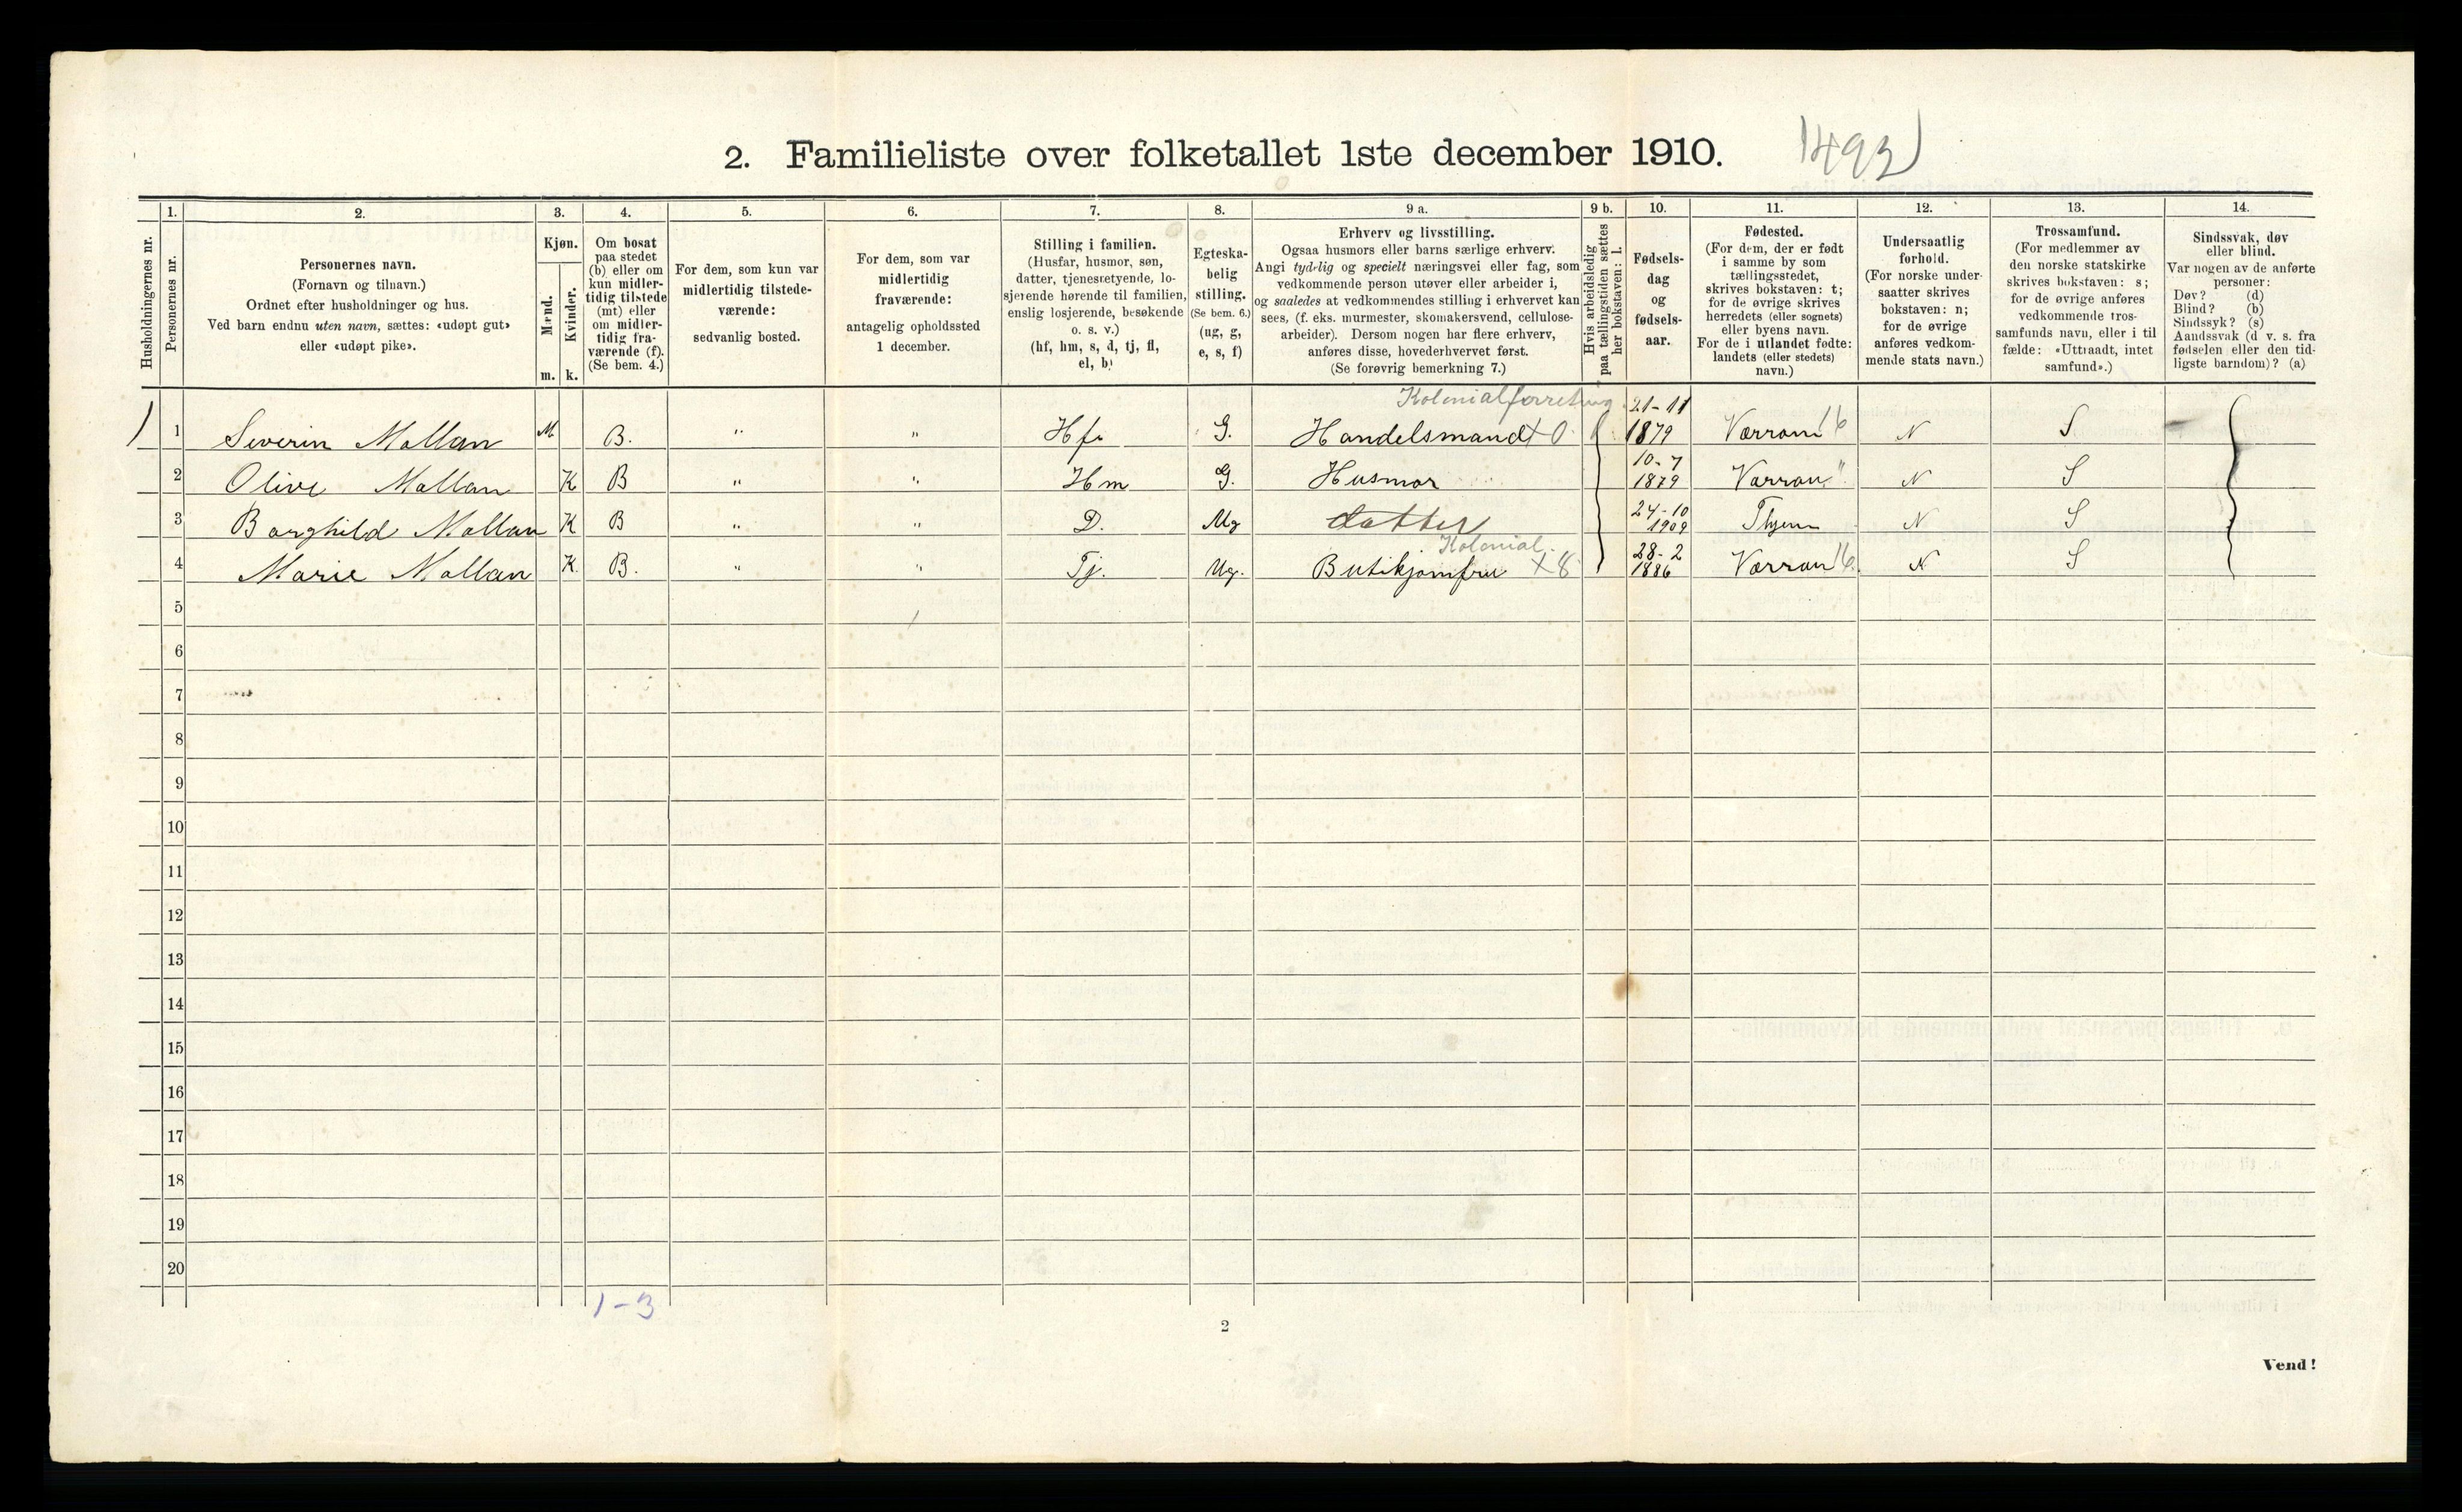 2. Familieliste over folketallet 1ste december 1910.
1493
Husholdningernes nr.
1.
Personernes nr.
2.
Personernes navn.
(Fornavn og tilnavn.)
Ordnet efter husholdninger og hus.
Ved barn endnu uten navn, sættes: «udøpt gut»
eller «udøpt pike».
3.
Kjøn.
Mænd.
Kvinder.
m. k.
4.
Om bosat
paa stedet
(b) eller om
kun midler-
tidig tilstede
(mt) eller
om midler-
tidig fra-
værende (f).
(Se bem. 4.)
5.
For dem, som kun var
midlertidig tilstede-
værende:
sedvanlig bosted.
6.
For dem, som var
midlertidig
fraværende:
antagelig opholdssted
1 december.
7.
Stilling i familien.
(Husfar, husmor, søn,
datter, tjenestetyende, lo-
sjerende hørende til familien,
enslig losjerende, besøkende
o. s. v.)
(hf, hm, s, d, tj, fl,
el, b)
8.
Egteska-
belig
stilling.
(Se bem. 6.)
(ug, g,
e, s, f)
9 a.
Erhverv og livsstilling.
Ogsaa husmors eller barns særlige erhverv.
Angi tydelig og specielt næringsvei eller fag, som
vedkommende person utøver eller arbeider i,
og saaledes at vedkommendes stilling i erhvervet kan
sees, (f. eks. murmester, skomakersvend, cellulose-
arbeider). Dersom nogen har flere erhverv,
anføres disse, hovederhvervet først.
(Se forøvrig bemerkning 7.)
9 b.
Hvis arbeidsledig
paa tællingstiden sættes
her bokstaven: l.
10.
Fødsels-
dag
og
fødsels-
aar.
11.
Fødested.
(For dem, der er født
i samme by som
tællingsstedet,
skrives bokstaven: t;
for de øvrige skrives
herredets (eller sognets)
eller byens navn.
For de i utlandet fødte:
landets (eller stedets)
navn.)
12.
Undersaatlig
forhold.
(For norske under-
saatter skrives
bokstaven: n;
for de øvrige
anføres vedkom-
mende stats navn.)
13.
Trossamfund.
(For medlemmer av
den norske statskirke
skrives bokstaven: s;
for de øvrige anføres
vedkommende tros-
samfunds navn, eller i til
fælde: «Uttraadt, intet
samfund».)
14.
Sindssvak, døv
eller blind.
Var nogen av de anførte
personer:
Døv? (d)
Blind? (b)
Sindssyk? (s)
Aandssvak (d v. s. fra
fødselen eller den tid-
ligste barndom)? (a)
Kolonialforretning 21-11
1 Severin Mollan M B. " " Hf. G. Handelsmand x 0 1879 Værran 16 N S
10-7
2 Olive Mollan K B " " Hm G. Husmor 1879 Værran " N S
24-10
3 Borghild Mollan K B " " D. Ug datter 1909 N S
Kolonial. 28-2
4 Marie Mollan K B. " " Tj. Ug. Butikjomfru x 8 1886 Værran 16 N S
5
6
7
8
9
10
11
12
13
14
15
16
17
18
19
20
1-3
2
Vend!